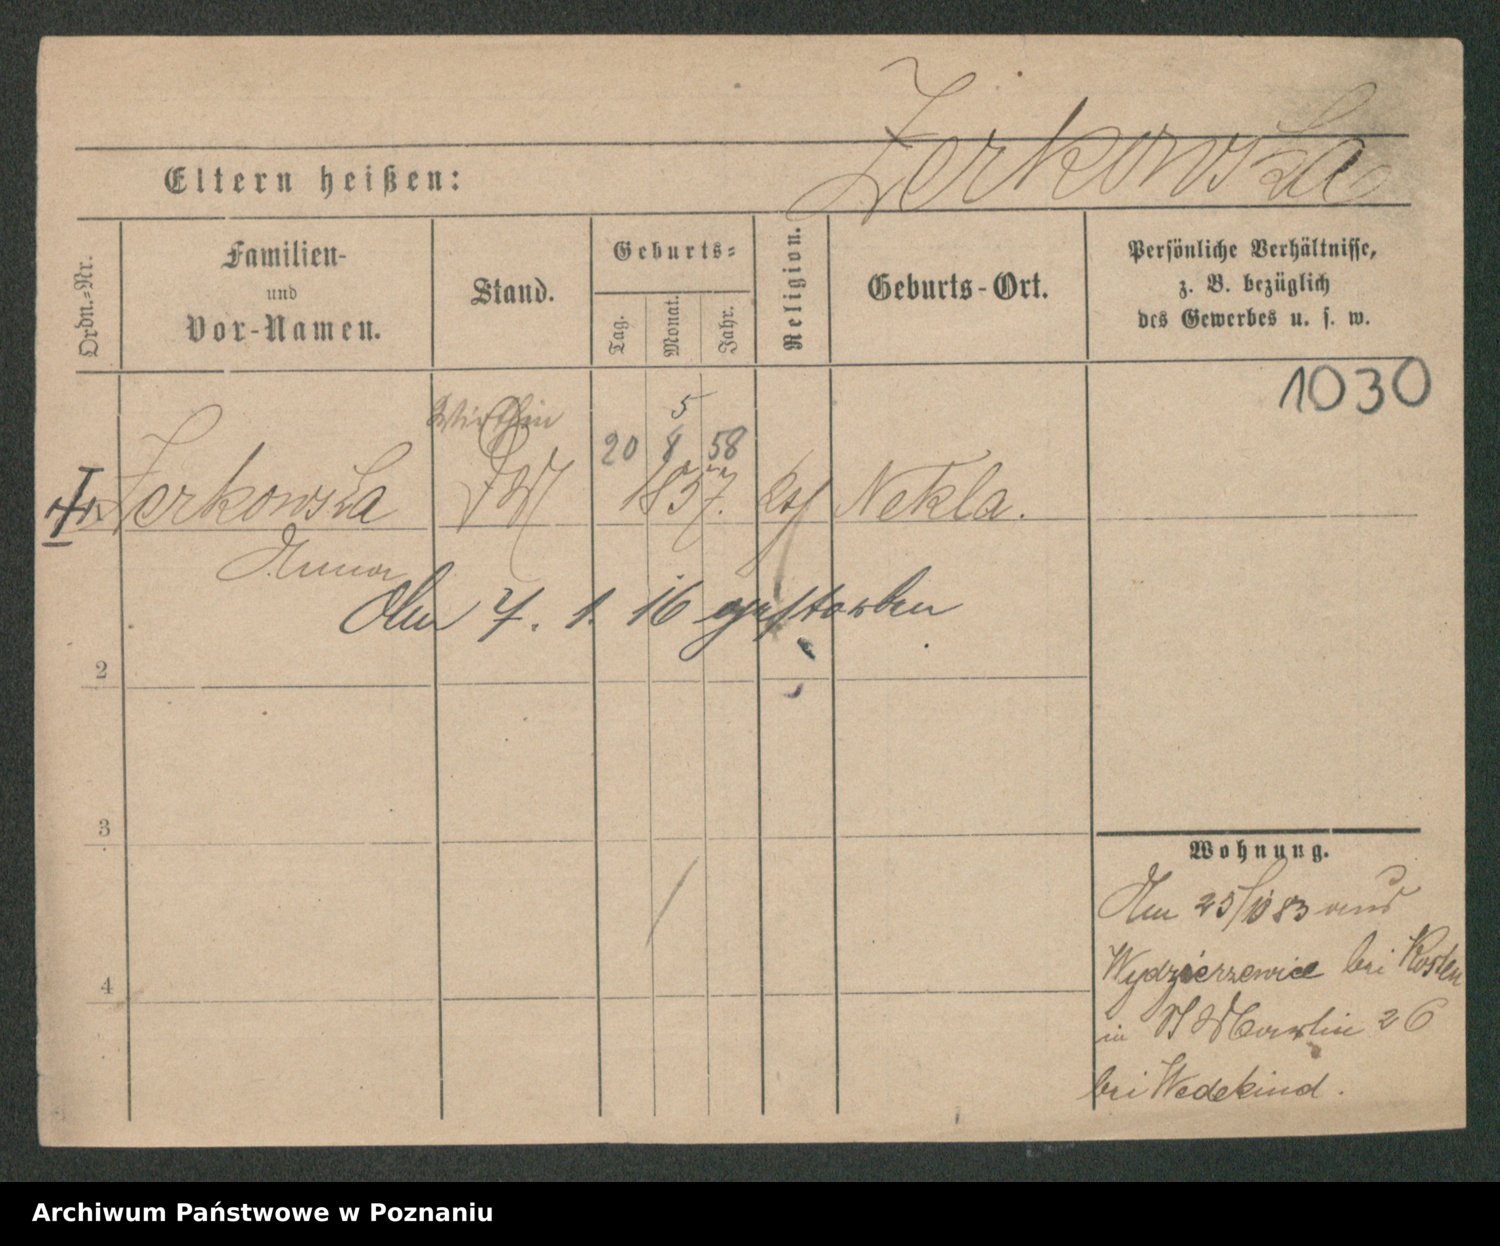 Zerkowska
Eltern heißen:
Ordn.-Nr.
Familien-
und
Vor-Namen.
Stand.
Geburts-
Tag.
Monat.
Jahr.
Religion.
Geburts-Ort.
Persönliche Verhältnisse,
z. B. bezüglich
des Gewerbes u. s. w.
1030
Wirthin
5
20 8 58
Zerkowska 1857. Nekla.
Anna
Am 7. 1. 16 gestorben
2
3
4
Wohnung.
Am 25/10 83 aus
Wydzierzewice bei Kosten
in St Martin 26
bei Wedekind.
Archiwum Państwowe w Poznaniu